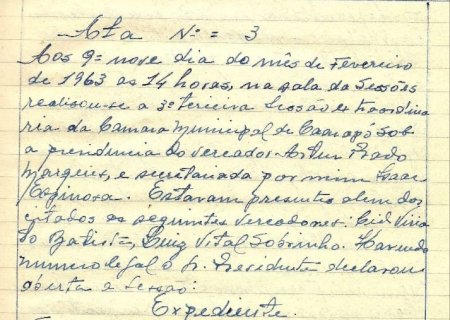 Ata Nº = 3
Aos 9= nove dia do mês de Fevereiro
de 1963 as 14 horas, na sala da Sessões
realisou-se a 3º terceira Sessão extraordina
ria da Camara Municipal de Caarapó sob
a presidencia do vereador Artur Prado
Marques, e secretariada por mim Isaac
Espinosa. Estavam presentes alem dos
citados os seguintes vereadores: Cid
do Batista, Luiz Vital Sobrinho. Havendo
numero legal o Sr. Presidente declarou
aberta a Sessão:
Expediente.